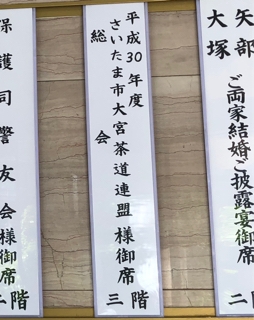 矢部
大塚
ご両家結婚ご披露宴御席
二
平成30年度
さいたま市大宮茶道連盟 様御席
総会
三階
保護司警友会様御席
二階